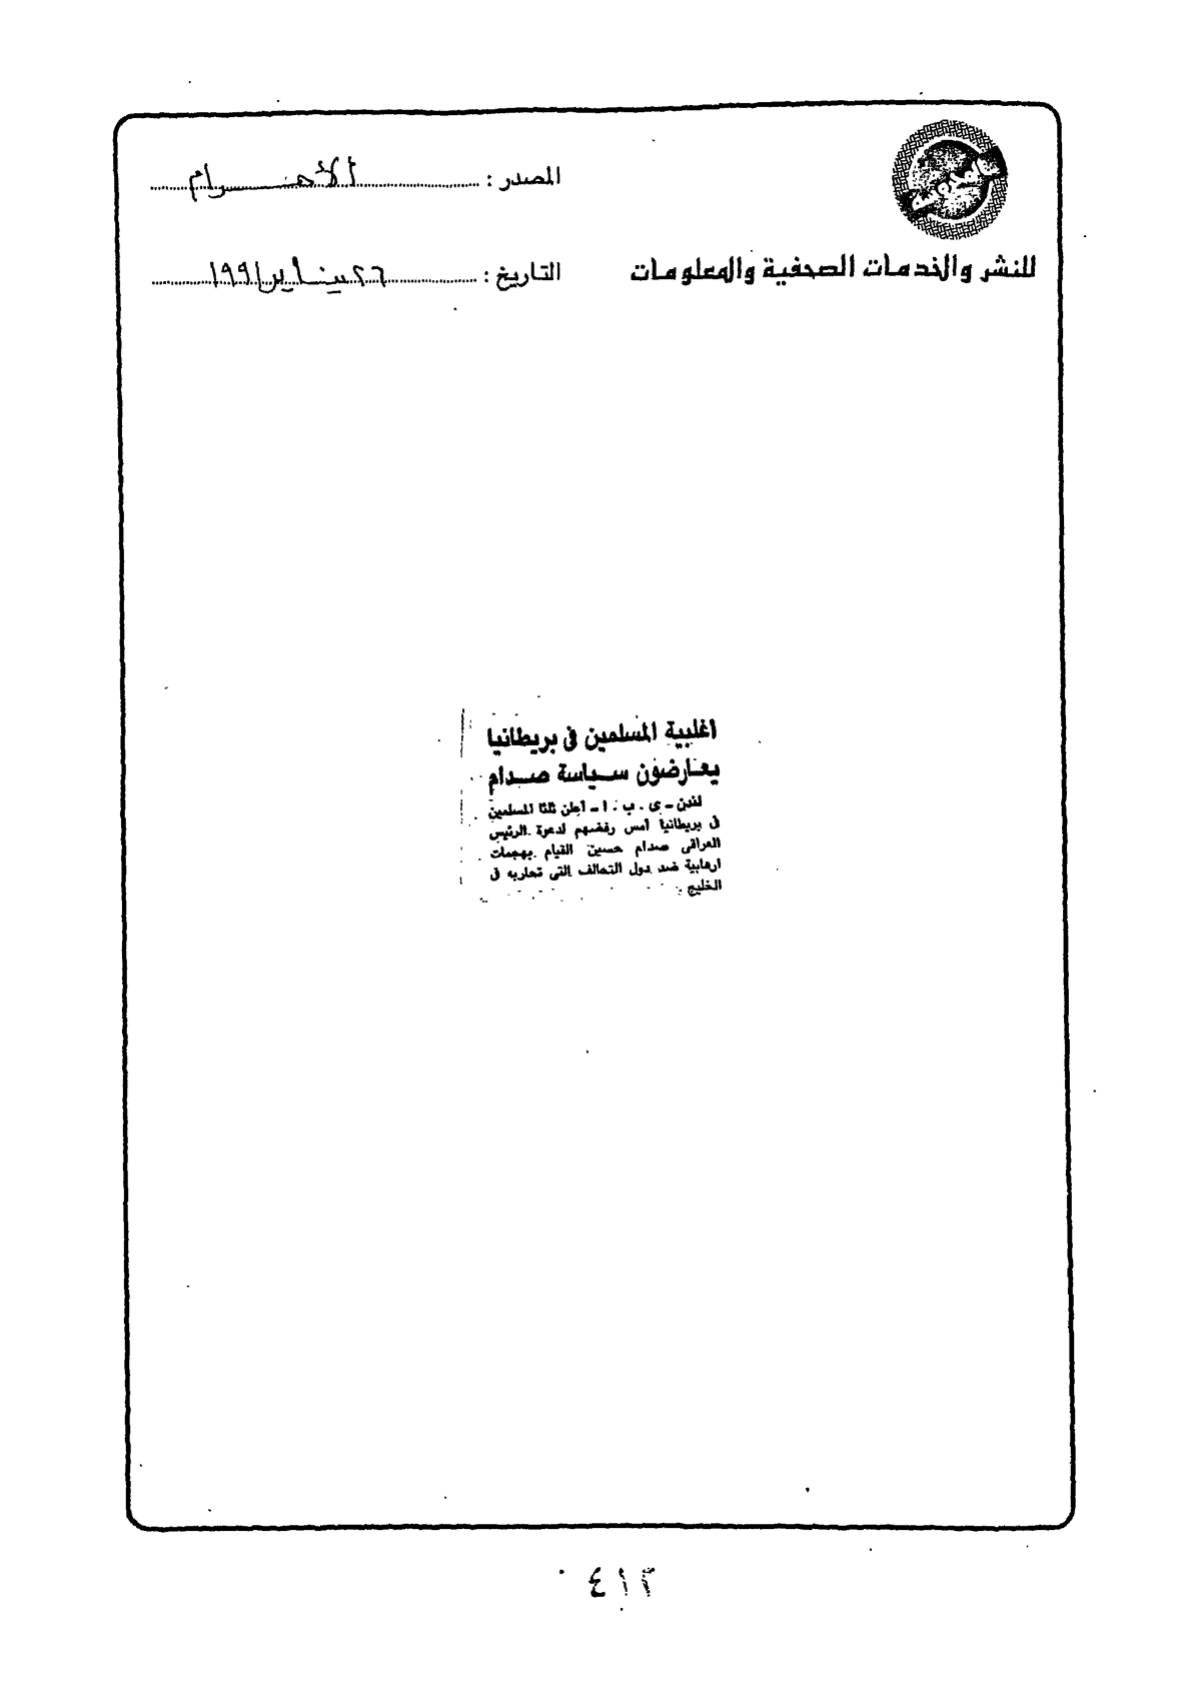 المحروسة
للنشر والخدمات الصحفية والمعلومات
المصدر : الأهرام
التاريخ : ٢٦ يناير ١٩٩١
اغلبية المسلمين فى بريطانيا
يعارضون سياسة صدام
لندن - ى . ب . ا - أعلن ثلثا المسلمين
فى بريطانيا أمس رفضهم لدعوة الرئيس
العراقى صدام حسين القيام بهجمات
ارهابية ضد دول التحالف التى تحاربه فى
الخليج .
٤١٢